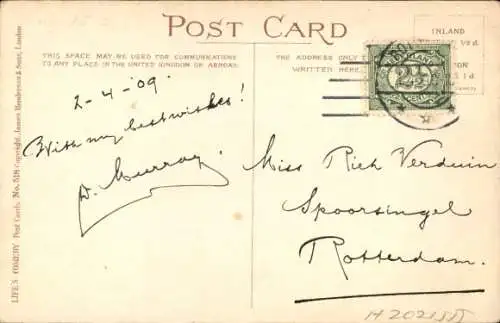 POST CARD
THIS SPACE MAY BE USED FOR COMMUNICATIONS
TO ANY PLACE IN THE UNITED KINGDOM OR ABROAD.
THE ADDRESS ONLY T
WRITTEN HERE.
INLAND
2½
2-4-'09.
With my best wishes!
D. Murray.
Miss Rich Verduin
Spoorsingel
Rotterdam.
LIFE'S COMEDY Post Cards. No. 518 Copyright, James Henderson & Sons, London
H202155